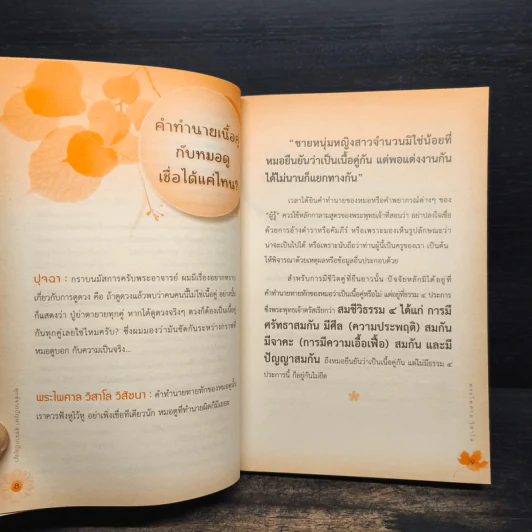 คำทำนายเนื้อคู่
กับหมอดู
เชื่อได้แค่ไหน?
ปุจฉา : กราบนมัสการครับพระอาจารย์ ผมมีเรื่องอยากทราบ
เกี่ยวกับการดูดวง คือ ถ้าดูดวงแล้วพบว่าคนคนนี้ไม่ใช่เนื้อคู่
ก็แสดงว่า ปู่ย่าตายายทุกคู่ หากได้ดูดวงจริงๆ ดวงก็ต้องเป็นเนื้อคู่
กันทุกคู่เลยใช่ไหมครับ? ซึ่งผมมองว่ามันขัดกันระหว่างการที่
หมอดูบอก กับความเป็นจริง...
พระไพศาล วิสาโล วิสัชนา : คำทำนายทายทักของหมอดูนั้น
เราควรฟังหูไว้หู อย่าเพิ่งเชื่อทีเดียวนัก หมอดูที่ทำนายผิดก็มีเยอะ
“ชายหนุ่มหญิงสาวจำนวนมิใช่น้อยที่
หมอยืนยันว่าเป็นเนื้อคู่กัน แต่พอแต่งงานกัน
ได้ไม่นานก็แยกทางกัน”
เวลาได้ยินคำทำนายของหมอหรือคำพยากรณ์ต่างๆ ของ
“ผู้รู้” ควรใช้หลักกาลามสูตรของพระพุทธเจ้าที่สอนว่า อย่าปลงใจเชื่อ
ด้วยการอ้างตำราหรือคัมภีร์ หรือเพราะมองเห็นรูปลักษณะว่า
น่าจะเป็นไปได้ หรือเพราะนับถือว่าท่านผู้นี้เป็นครูของเรา เป็นต้น
ให้พิจารณาด้วยเหตุผลหรือข้อมูลอื่นประกอบด้วย
สำหรับการมีชีวิตคู่ที่ยืนยาวนั้น ปัจจัยหลักมิได้อยู่ที่
คำทำนายทายทักของหมอว่าเป็นเนื้อคู่หรือไม่ แต่อยู่ที่ธรรม ๔ ประการ
ซึ่งพระพุทธเจ้าตรัสเรียกว่า สมชีวิธรรม ๔ ได้แก่ การมี
ศรัทธาสมกัน มีศีล (ความประพฤติ) สมกัน
มีจาคะ (การมีความเอื้อเฟื้อ) สมกัน และมี
ปัญญาสมกัน ถึงหมอยืนยันว่าเป็นเนื้อคู่กัน แต่ไม่มีธรรม ๔
ประการนี้ ก็อยู่กันไม่ยืด